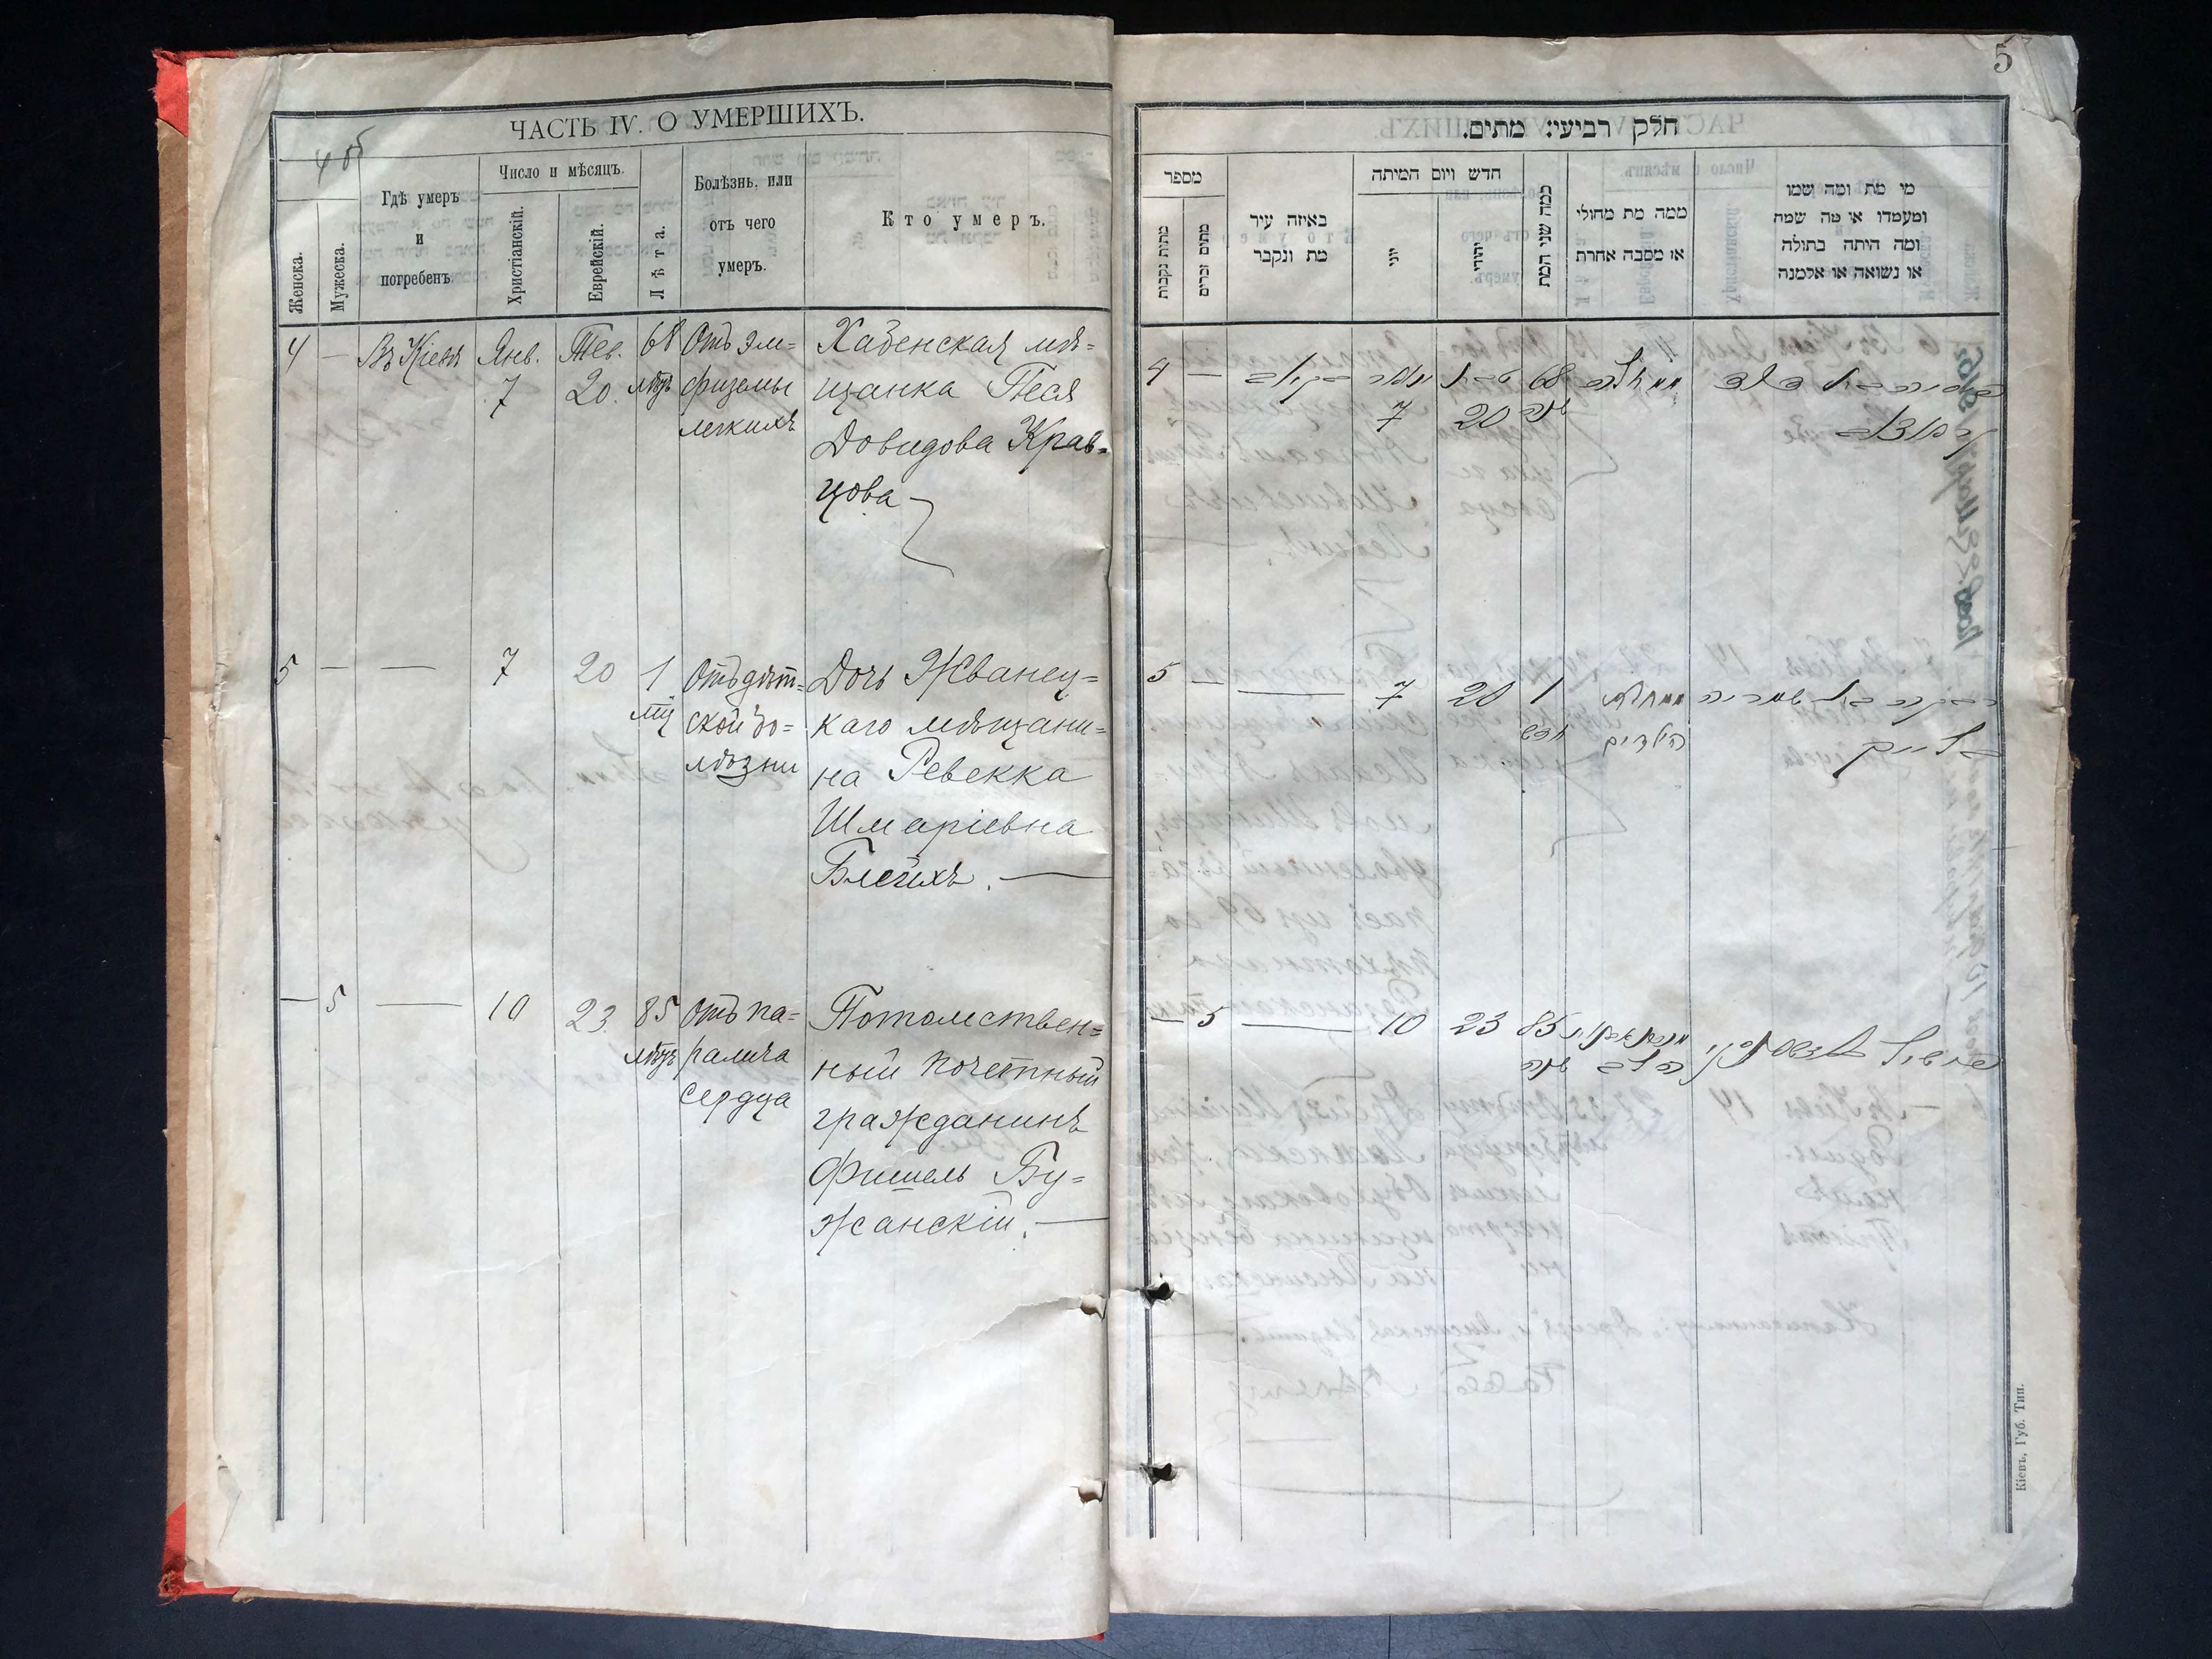 ЧАСТЬ IV. О УМЕРШИХЪ.
4 об
Женска.
Мужеска.
Гдѣ умеръ
и
погребенъ
Число и мѣсяцъ.
Христіанскій.
Еврейскій.
Лѣта.
Болѣзнь, или
отъ чего
умеръ.
Кто умеръ.
4 — Въ Кіевѣ Янв. Тев. 68 Отъ эм=
7 20 лѣтъ физемы
легкихъ
Хабенская мѣ=
щанка Песя
Довидова Крав=
цова
5 — — 7 20 1 Отъ дѣт=
мц ской бо=
лѣзни
Дочь Жванец=
каго мѣщани=
на Ревекка
Шмаріевна
Блейхъ.
— 5 — 10 23 85 Отъ па=
лѣтъ ралича
сердца
Потомствен=
ный почетный
гражданинъ
Фишель Бу=
жанскій.
5
חלק רביעי: מתים.
מספר
מתות נקבות
מתים זכרים
באיזה עיר
מת ונקבר
חדש ויום המיתה
יוני
יהודי
כמה שני המת
ממה מת מחולי
או מסבה אחרת
מי מת ומה שמו
ומעמדו או מה שמה
ומה היתה בתולה
או נשואה או אלמנה
4 — 7 20 68 שנה
5 — — 7 20 1 חדש
ממחלת
הילדים
רבקה בת שמריה
בלייך
— 5 — 10 23 85 שנה
הלב
פישל
Кіевъ, Губ. Тип.